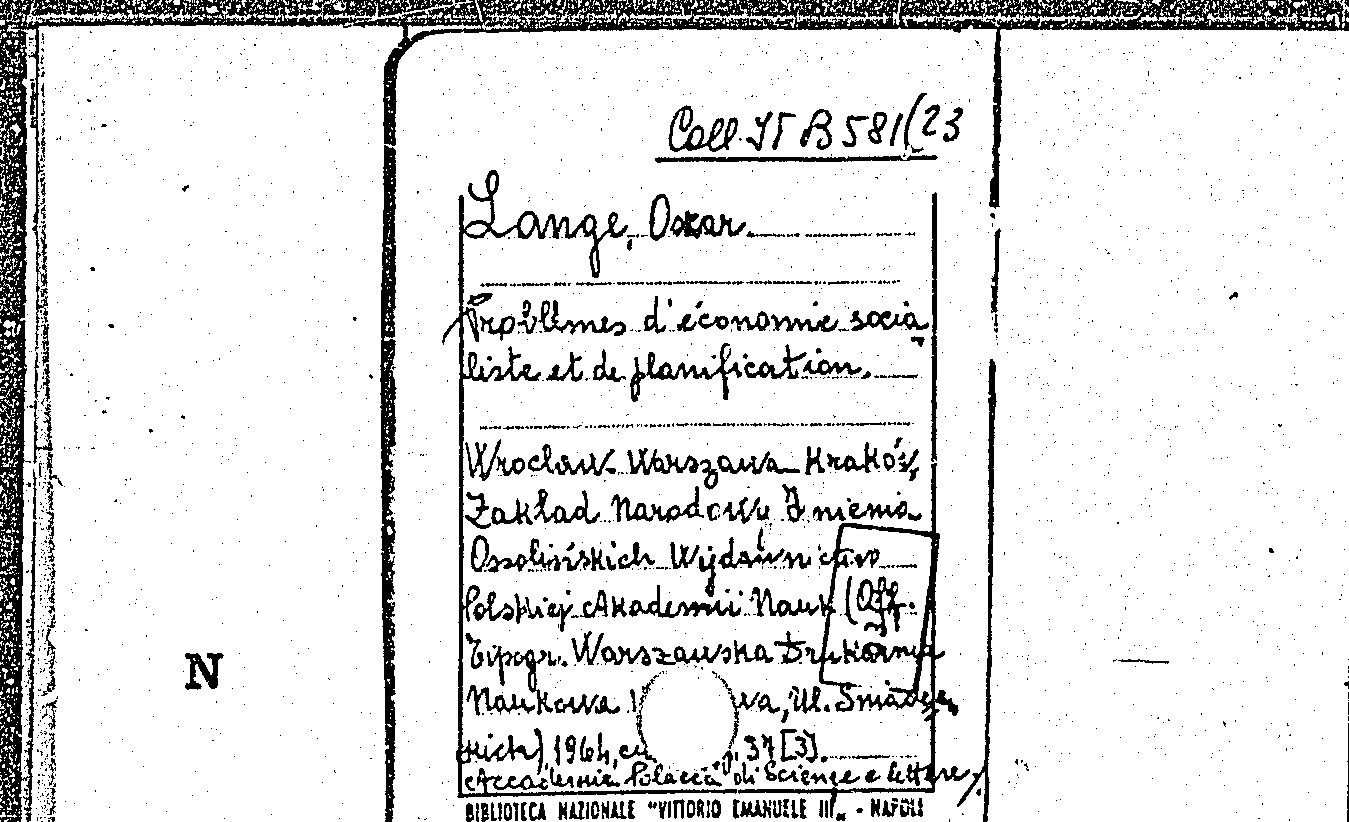 Coll. It B 581(23
Lange, Oskar.
Problèmes d'économie socia
liste et de planification.
Wrocław Warszawa Kraków,
Zakład Narodowy Imienia
Ossolińskich Wydawnictwo
Polskiej Akademii Nauk (Off.
Tipogr. Warszawska Drukarnia
Naukowa
va, Ul. Śniadec
kich) 1964, 37 [3].
Accademia Polacca di Scienze e lettere
N
BIBLIOTECA NAZIONALE "VITTORIO EMANUELE III„ - NAPOLI